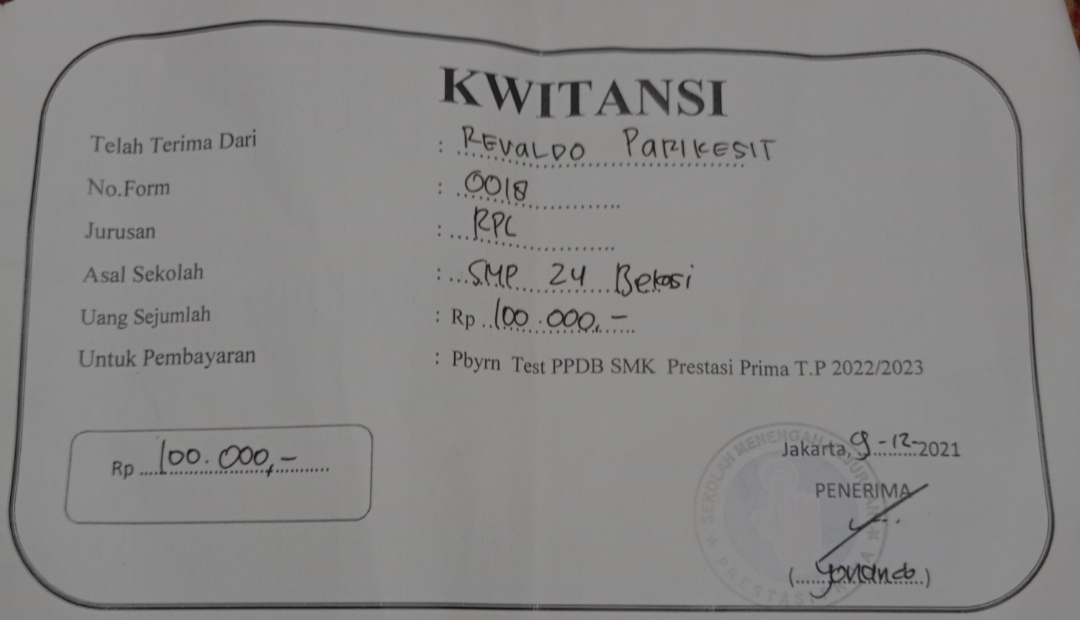 KWITANSI
Telah Terima Dari : REVALDO PARIKESIT
No.Form : 0018
Jurusan : RPL
Asal Sekolah : SMP 24 Bekasi
Uang Sejumlah : Rp 100.000,-
Untuk Pembayaran : Pbyrn Test PPDB SMK Prestasi Prima T.P 2022/2023
Rp 100.000,-
Jakarta, 9-12-2021
PENERIMA
SEKOLAH MENENGAH
(Yonando)